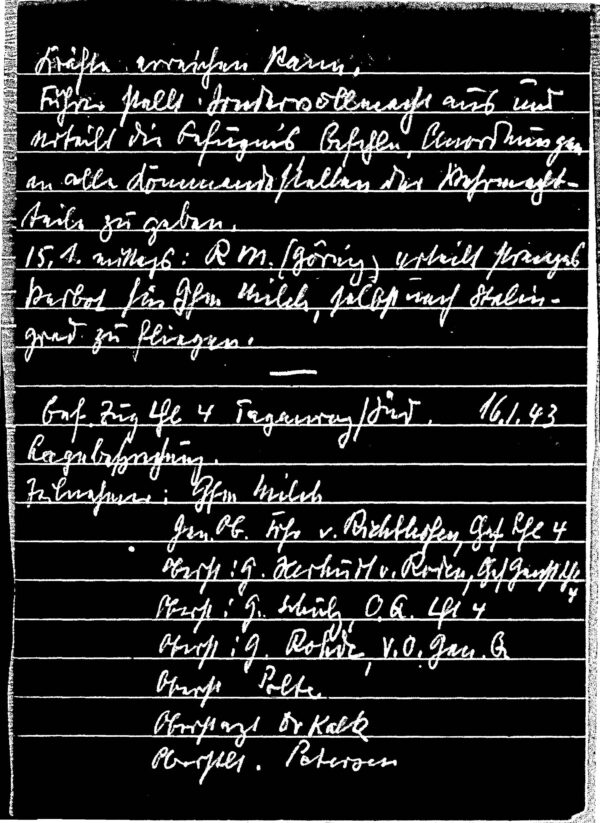 Kräfte erreichen kann.
Führer stellt Sondervollmacht aus und
erteilt die Befugnis Befehle, Anordnungen
an alle Kommandostellen der Wehrmacht-
teile zu geben.
15.1. mittags: R.M. (Göring) erteilt strenges
Verbot für Gfm Milch, selbst nach Stalin-
grad zu fliegen.
Bef. Zug Lfl 4 Taganrog/Süd. 16.1.43
Lagebesprechung.
Teilnehmer: Gfm Milch
Gen. Ob. Frhr v. Richthofen, Chef Lfl 4
Oberst i. G. Herhudt v. Rohden, Chef Genst Lfl 4
Oberst i. G. Schulz, O.Q. Lfl 4
Oberst i. G. Rohde, V.O. Gen. Q
Oberst Polte
Oberstarzt Dr Kalk
Oberstlt. Petersen